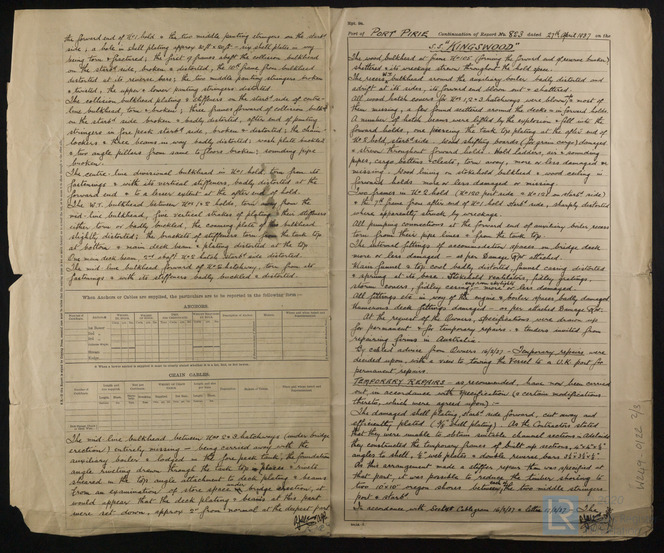 the forward end of No 1 hold & the two middle panting stringers on the starbd
side; a hole in shell plating approx 20ft x 20ft - six shell plates in way
being torn & fractured; the first 9 frames abaft the collision bulkhead
on the starbd side, broken & distorted, the 10th frame from bulkhead
distorted at its reverse bars; the two middle panting stringers broken
& twisted; the upper & lower panting stringers distorted.
The collision bulkhead plating & stiffeners on the starbd side of centre-
line bulkhead, torn & broken; three frames forward of collision bulkhd
on the starbd side broken & badly distorted, after end of panting
stringers in fore peak starbd side, broken & distorted; the chain
lockers & three beams in way badly distorted; wash plate buckled
& two angle pillars from same to floors broken; sounding pipe
broken.
The centre-line divisional bulkhead in No 1 hold torn from its
fastenings & with its vertical stiffeners, badly distorted at the
forward end & to a lesser extent at the after end of hold.
The W.T. bulkhead between Nos 1 & 2 holds torn away from the
mid-line bulkhead, five vertical strakes of plating & their stiffeners
either torn or badly buckled, the coaming plate of this bulkhead
slightly distorted; the brackets of stiffeners torn from the tank top
at bottom & main deck beam & plating distorted at the top
One main deck beam, 2nd abaft No 2 hatch starbd side distorted.
The mid line bulkhead forward of No 2 hatchway, torn from its
fastenings & with its stiffeners badly buckled & distorted.
When Anchors or Cables are supplied, the particulars are to be reported in the following form:—
ANCHORS.
CHAIN CABLES.
The mid line bulkhead between Nos 2 & 3 hatchways (under bridge
erections) entirely missing - being carried away with the
auxiliary boiler & lodged in the fore peak tank, the foundation
angle riveting drawn through the tank top in places & rivets
sheared in the top angle attachment to deck plating & beams
From an examination of store space under bridge erection, it
would appear that the deck plating & beams at this part
were set down, approx 2" from normal at the deepest part
Rpt. 9A.
Port of PORT PIRIE Continuation of Report No. 823 dated 27th April 1937
S.S. "KINGSWOOD"
The wood bulkhead at frame No 105 (forming the forward end of reserve bunker)
shattered & its wreckage strewn throughout the hold space.
The recess W.T. bulkhead around the auxiliary boiler badly distorted and
adrift at its sides, its forward end blown out & shattered.
All wood hatch covers for Nos 1, 2 & 3 hatchways were blown, & most of
them missing, a few found scattered around the decks & in forward holds.
A number of hatch beams were lifted by the explosion & fell into the
forward holds, one piercing the tank top plating at the after end of
No 2 hold, starbd side. Wood shifting boards (for grain cargo) damaged
& strewn throughout forward holds. Hold ladders, air & sounding
pipes, cargo battens & cleats, torn away, more or less damaged &
or missing. Wood lining on stokehold bulkhead & wood ceiling in
forward holds more or less damaged or missing.
Two frames in No 2 hold (No 100 port side & No 101 on starbd side)
& the 7th frame from after end of No 1 hold starbd side, sharply distorted
where apparently struck by wreckage.
All pumping connections at the forward end of auxiliary boiler recess
torn from their pipe lines & from the tank top.
The internal fittings of accomodation spaces on bridge deck
more or less damaged - as per Damage Rpt attached.
Main funnel & top coat badly distorted, funnel casing distorted
& sprung at its base. Stokehold ventilators, fidley gratings,
storm covers, fidley casing & engine skylights more or less damaged.
All fittings etc in way of the engine & boiler spaces badly damaged
Numerous deck fittings damaged - as per attached Damage Rpt.
At the request of the Owners, specifications were drawn up
for permanent & for temporary repairs, & tenders invited from
repairing firms in Australia.
By cabled advice from Owners 16/2/37 - Temporary repairs were
decided upon, with a view to taking the vessel to a U.K. port for
permanent repairs
TEMPORARY REPAIRS - as recommended, have now been carried
out, in accordance with specification (& certain modifications
thereto, which were agreed upon) -
The damaged shell plating, starbd side forward, cut away and
efficiently plated (3/8" shell plating) - As the Contractors stated
that they were unable to obtain suitable channel sections in Adelaide
they constructed the temporary frames of built-up sections,
angles to shell, web plates & double reverse bars
As this arrangement made a stiffer repair than was specified at
that part, it was possible to reduce the timber shoring to
two 10"x10" oregon shores between the two middle stringers
port & starbd
In accordance with Socles Cablegram 10/3/37 & letter 11/3/37 - The
W249-0122 2/3